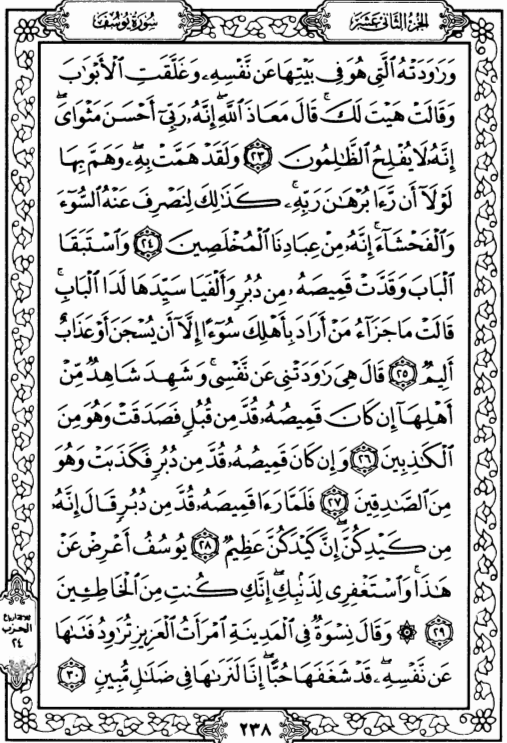 سُورَةُ يُوسُفَ
الجُزءُ الثَّانِي عَشَرَ
وَرَٰوَدَتْهُ ٱلَّتِى هُوَ فِى بَيْتِهَا عَن نَّفْسِهِۦ وَغَلَّقَتِ ٱلْأَبْوَٰبَ
وَقَالَتْ هَيْتَ لَكَ ۚ قَالَ مَعَاذَ ٱللَّهِ ۖ إِنَّهُۥ رَبِّىٓ أَحْسَنَ مَثْوَاىَ ۖ
إِنَّهُۥ لَا يُفْلِحُ ٱلظَّٰلِمُونَ ۝٢٣ وَلَقَدْ هَمَّتْ بِهِۦ ۖ وَهَمَّ بِهَا
لَوْلَآ أَن رَّءَا بُرْهَٰنَ رَبِّهِۦ ۚ كَذَٰلِكَ لِنَصْرِفَ عَنْهُ ٱلسُّوٓءَ
وَٱلْفَحْشَآءَ ۚ إِنَّهُۥ مِنْ عِبَادِنَا ٱلْمُخْلَصِينَ ۝٢٤ وَٱسْتَبَقَا
ٱلْبَابَ وَقَدَّتْ قَمِيصَهُۥ مِن دُبُرٍ وَأَلْفَيَا سَيِّدَهَا لَدَا ٱلْبَابِ ۚ
قَالَتْ مَا جَزَآءُ مَنْ أَرَادَ بِأَهْلِكَ سُوٓءًا إِلَّآ أَن يُسْجَنَ أَوْ عَذَابٌ
أَلِيمٌ ۝٢٥ قَالَ هِىَ رَٰوَدَتْنِى عَن نَّفْسِى ۚ وَشَهِدَ شَاهِدٌ مِّنْ
أَهْلِهَآ إِن كَانَ قَمِيصُهُۥ قُدَّ مِن قُبُلٍ فَصَدَقَتْ وَهُوَ مِنَ
ٱلْكَٰذِبِينَ ۝٢٦ وَإِن كَانَ قَمِيصُهُۥ قُدَّ مِن دُبُرٍ فَكَذَبَتْ وَهُوَ
مِنَ ٱلصَّٰدِقِينَ ۝٢٧ فَلَمَّا رَءَا قَمِيصَهُۥ قُدَّ مِن دُبُرٍ قَالَ إِنَّهُۥ
مِن كَيْدِكُنَّ ۖ إِنَّ كَيْدَكُنَّ عَظِيمٌ ۝٢٨ يُوسُفُ أَعْرِضْ عَنْ
هَٰذَا ۚ وَٱسْتَغْفِرِى لِذَنۢبِكِ ۖ إِنَّكِ كُنتِ مِنَ ٱلْخَاطِـِٔينَ
۝٢٩ ۞ وَقَالَ نِسْوَةٌ فِى ٱلْمَدِينَةِ ٱمْرَأَتُ ٱلْعَزِيزِ تُرَٰوِدُ فَتَىٰهَا
عَن نَّفْسِهِۦ ۖ قَدْ شَغَفَهَا حُبًّا ۖ إِنَّا لَنَرَىٰهَا فِى ضَلَٰلٍ مُّبِينٍ ۝٣٠
الحزب
٢٤
٢٣٨